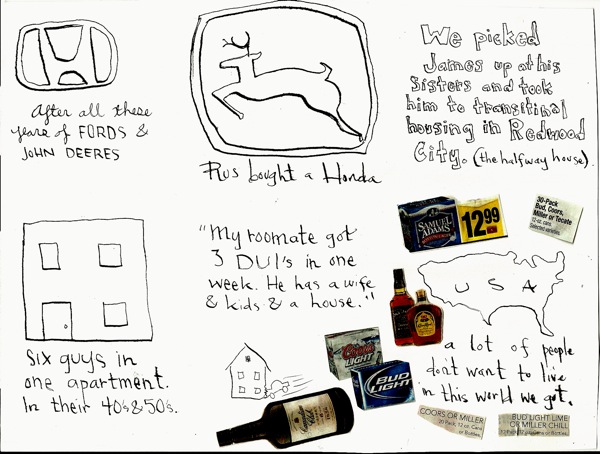 After all these
years of FORDS &
JOHN DEERES
Rus bought a Honda
We picked
James up at his
Sisters and took
him to transitinal
housing in Redwood
City. (the halfway house).
Six guys in
one apartment.
In their 40's & 50's.
"My roomate got
3 DUI's in one
week. He has a wife
& kids & a house."
SAMUEL
ADAMS
12.99
30-Pack
Bud, Coors,
Miller or Tecate
12 oz. cans
Selected varieties.
USA
Coors
LIGHT
BUD
LIGHT
a lot of people
don't want to live
in this world we got.
COORS OR MILLER
20 Pack, 12 oz. Cans
or Bottles.
BUD LIGHT LIME
OR MILLER CHILL